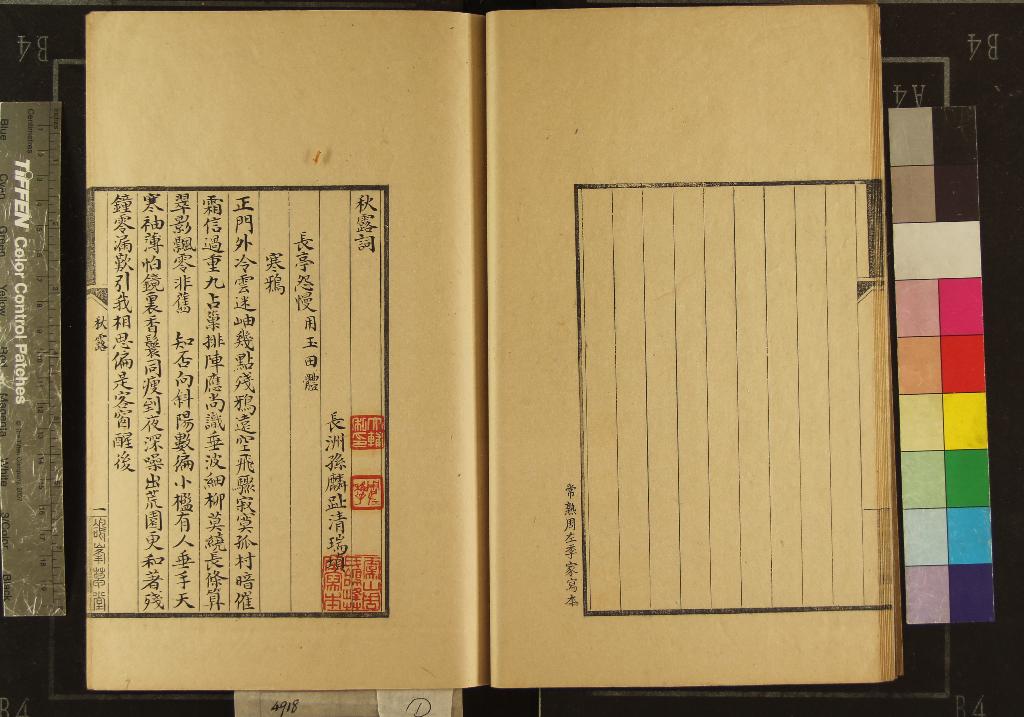 秋露詞
長洲孫麟趾清瑞填
長亭怨慢用玉田體
寒鴉
正門外冷雲迷岫幾點殘鴉遠空飛驟寂寞孤村暗催
霜信過重九占巢排陣應尚識垂波細柳莫繞長條算
翠影飄零非舊 知否向斜陽數徧小檻有人垂手天
寒袖薄怕鏡裏香鬟同瘦到夜深噪出荒園更和著殘
鐘零漏歎引我相思偏是客窗醒後
秋露
一
鴿峯草堂
常熟周左季家寫本
B4
B4
A4
B4
B4
TIFFEN Color Control Patches
Centimetres
Blue
Cyan
Green
Yellow
Red
Magenta
White
3/Color
Black
4918
D